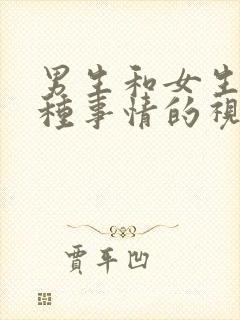 男生和女生
種事情的視
賈平凹